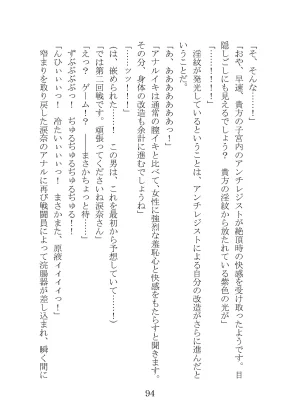 「そ、そんな……！」
「おや、早速、貴方の子宮内のアンチレジストが絶頂時の快感を受け取ったようです。目
隠しごしにも見えるでしょう？　貴方の淫紋から放たれている紫色の光が」
「………！！！」
　淫紋が発光しているということは、アンチレジストによる自分の改造がさらに進んだと
いうことだ。
「あ、ああああああ……」
「アナルイキは通常の膣イキと比べて、女性に強烈な羞恥心と快感をもたらすと聞きます。
その分、身体の改造も余計に進むでしょうね」
「……ッッ！！！」
（は、嵌められた……！　この男は、これを最初から予想していて……！）
「では第二回戦です。頑張ってくださいね涙奈さん」
「えっ？　ゲーム！？　――まさかちょっと待……」
　ずぷぷぷぷっ！　ちゅるちゅるちゅるちゅる！
「んひぃぃぃっ！　冷たいぃぃぃっ！　まさかまた、原液ィィィィっ！」
　窄まりを取り戻した涙奈のアナルに再び戦闘員によって浣腸器が差し込まれ、瞬く間に
94